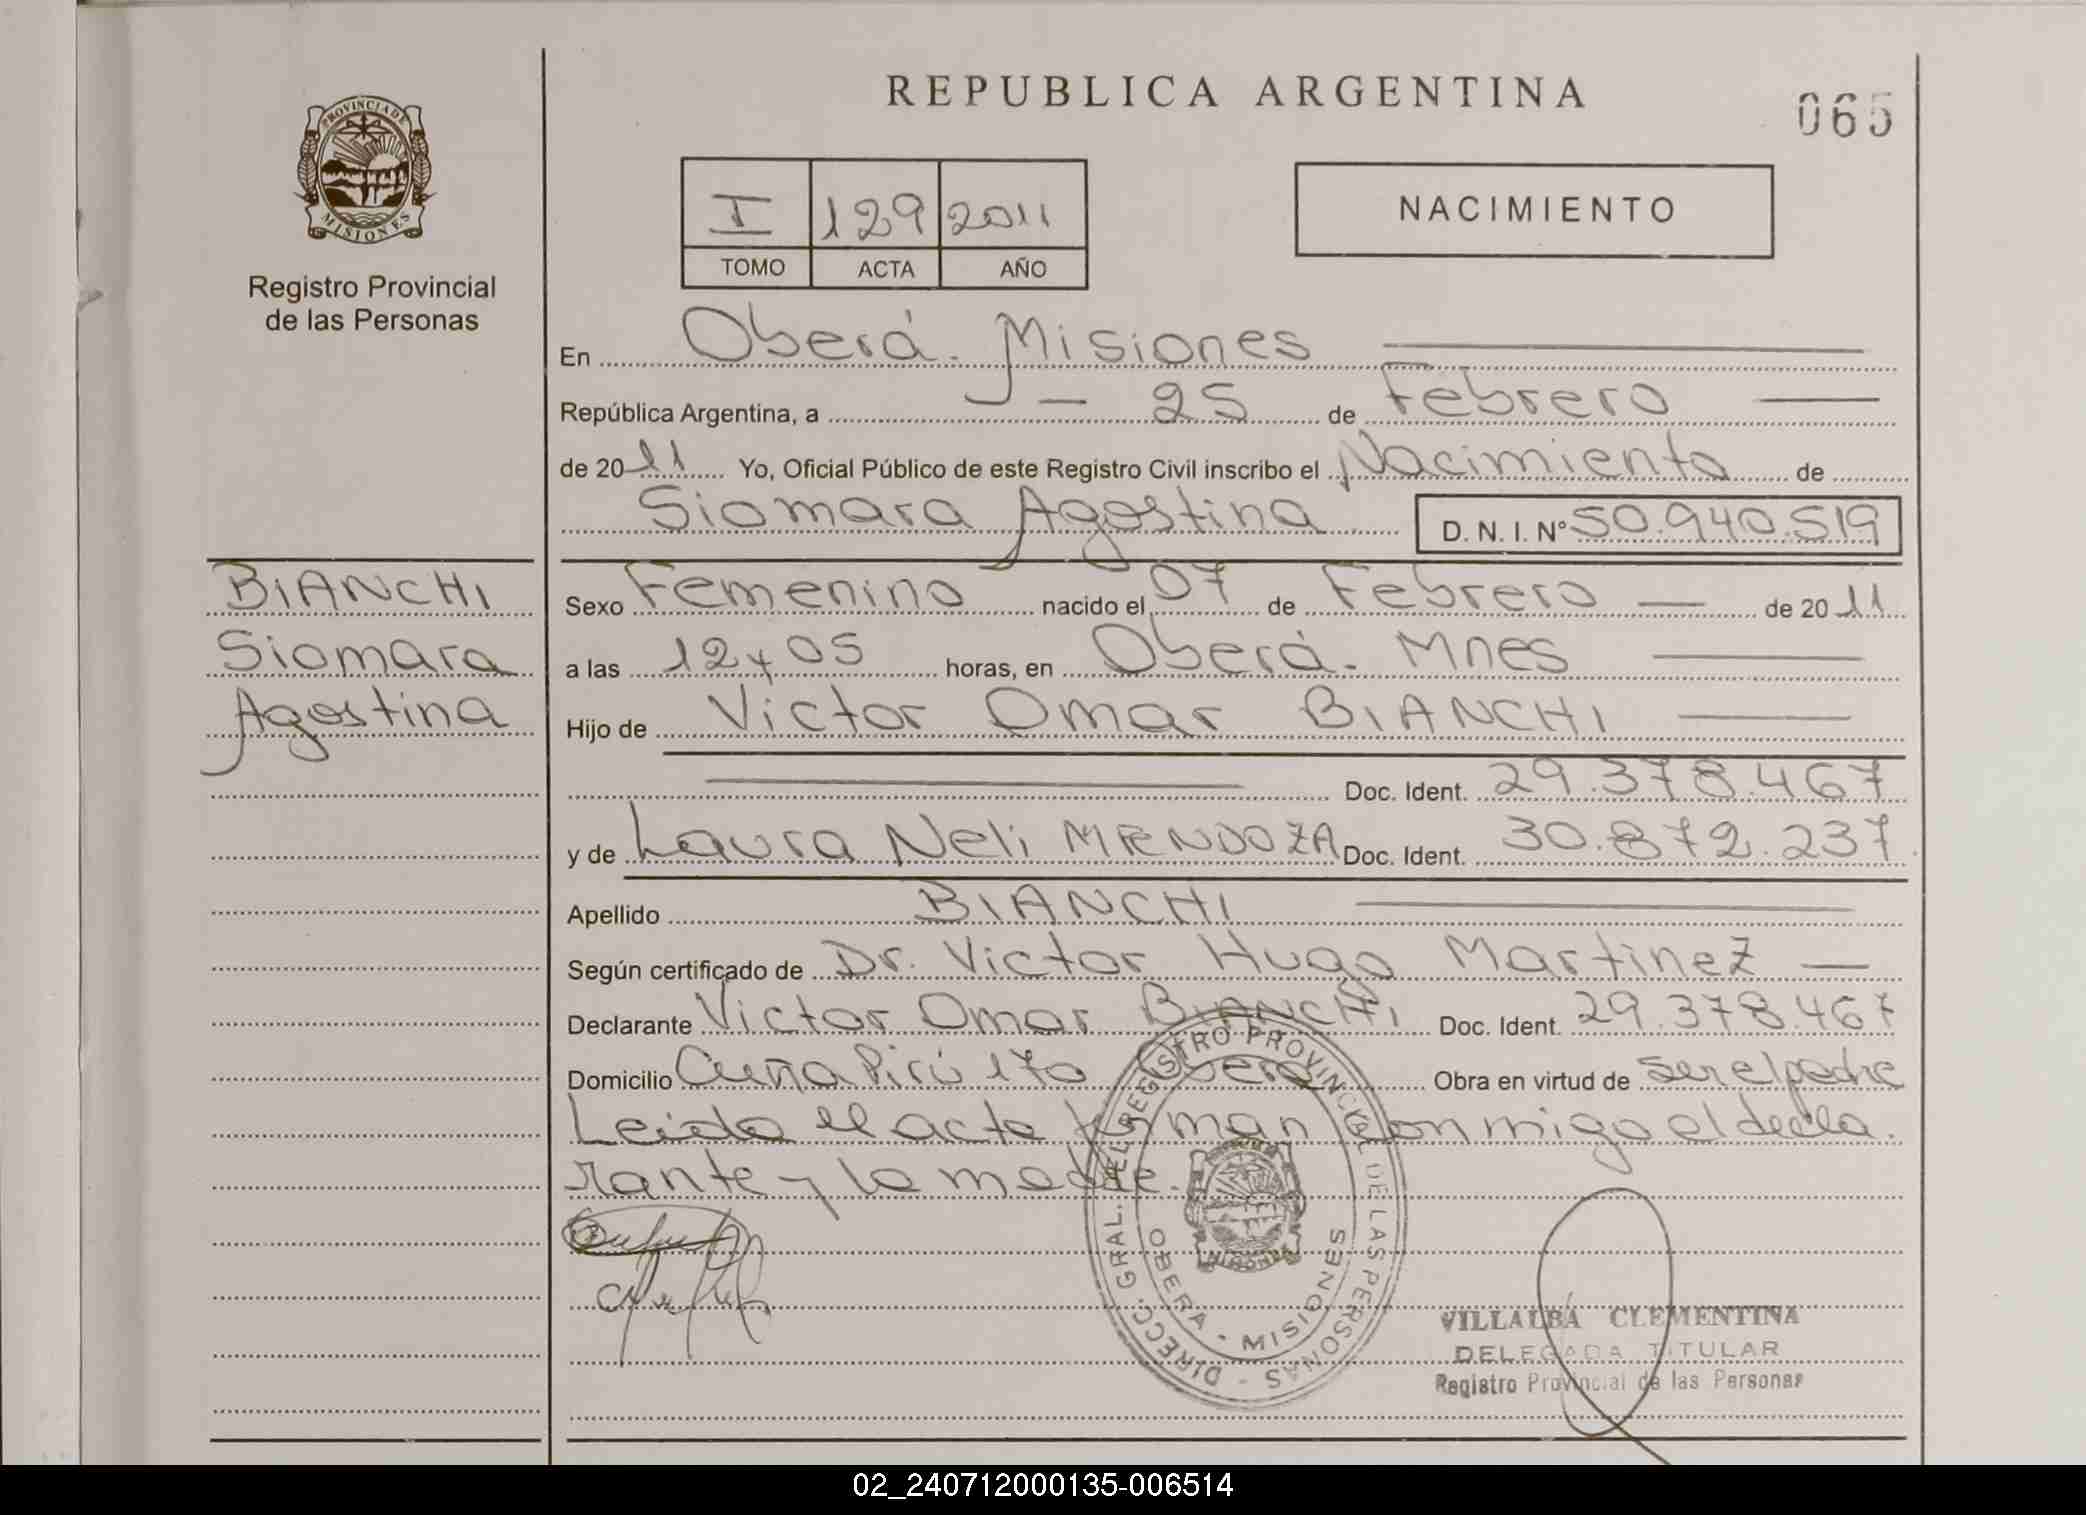 REPUBLICA ARGENTINA
065
PROVINCIA DE
MISIONES
Registro Provincial
de las Personas
I 129 2011
TOMO ACTA AÑO
NACIMIENTO
En Oberá. Misiones
República Argentina, a 25 de Febrero
de 2011 Yo, Oficial Público de este Registro Civil inscribo el Nacimiento de
Siomara Agostina D. N. I. Nº 50.940.519
BIANCHI
Siomara
Agostina
Sexo Femenino nacido el 07 de Febrero de 2011
a las 12 y 05 horas, en Oberá. Mnes
Hijo de Victor Omar BIANCHI
Doc. Ident. 29.378.467
y de Laura Neli MENDOZA Doc. Ident. 30.872.237
Apellido BIANCHI
Según certificado de Dr. Victor Hugo Martinez
Declarante Victor Omar BIANCHI Doc. Ident. 29.378.467
Domicilio Cuña Pirú 170 Oberá Obra en virtud de ser el padre
Leida el acta firman conmigo el decla.
rante y la madre.
DIRECC. GRAL. DEL REGISTRO PROVINCIAL DE LAS PERSONAS -
OBERA - MISIONES
MISIONES
VILLALBA CLEMENTINA
DELEGADA TITULAR
Registro Provincial de las Personas
02_240712000135-006514